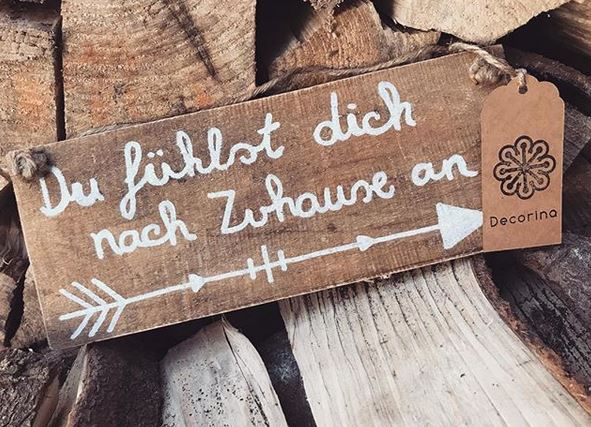 Du fühlst dich
nach Zuhause an
Decorina